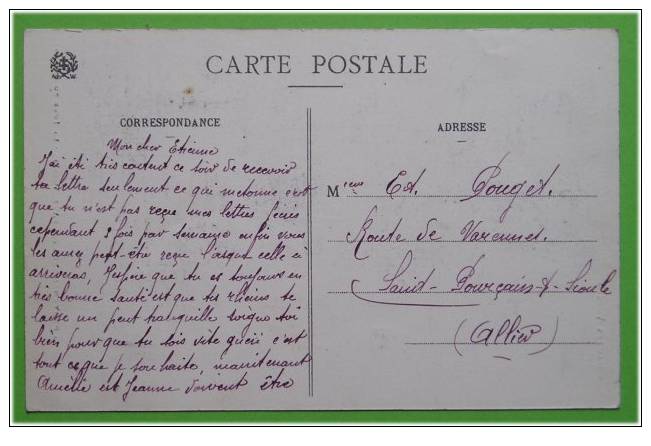 CARTE POSTALE
CORRESPONDANCE
ADRESSE
Mon cher Etienne
J'ai été très content ce soir de recevoir
ta lettre seulement ce qui m'etonne c'est
que tu n'est pas reçue mes lettres j'ecris
cependant 2 fois par semaine enfin vous
les aurez peut-etre reçue l'orsque celle ci
arriveras, J'espère que tu es toujours en
très bonne santé est que tes rhums te
laisse un peut tranquille soigne toi
bien pour que tu sois vite guéri c'est
tout ce que je souhaite, maintenant
Amélie est Jeanne doivent être
M Et. Pouget.
Route de Varennes.
Saint-Pourçain-s-Sioule
(Allier)